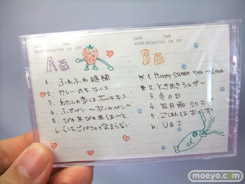 A面
1. ふわふわ時間
2. カレーのちライス
3. わたしの恋はホッチキス
4. ふでペン ～ボールペン～
5. ぴゅあぴゅあはーと
6. いちごパフェが止まらない
B面
1. Honey sweet tea time
2. ときめきシュガー
3. 冬の日
4. 五月雨20ラブ
5. ごはんはおかず
6. U&I
moeyo.com